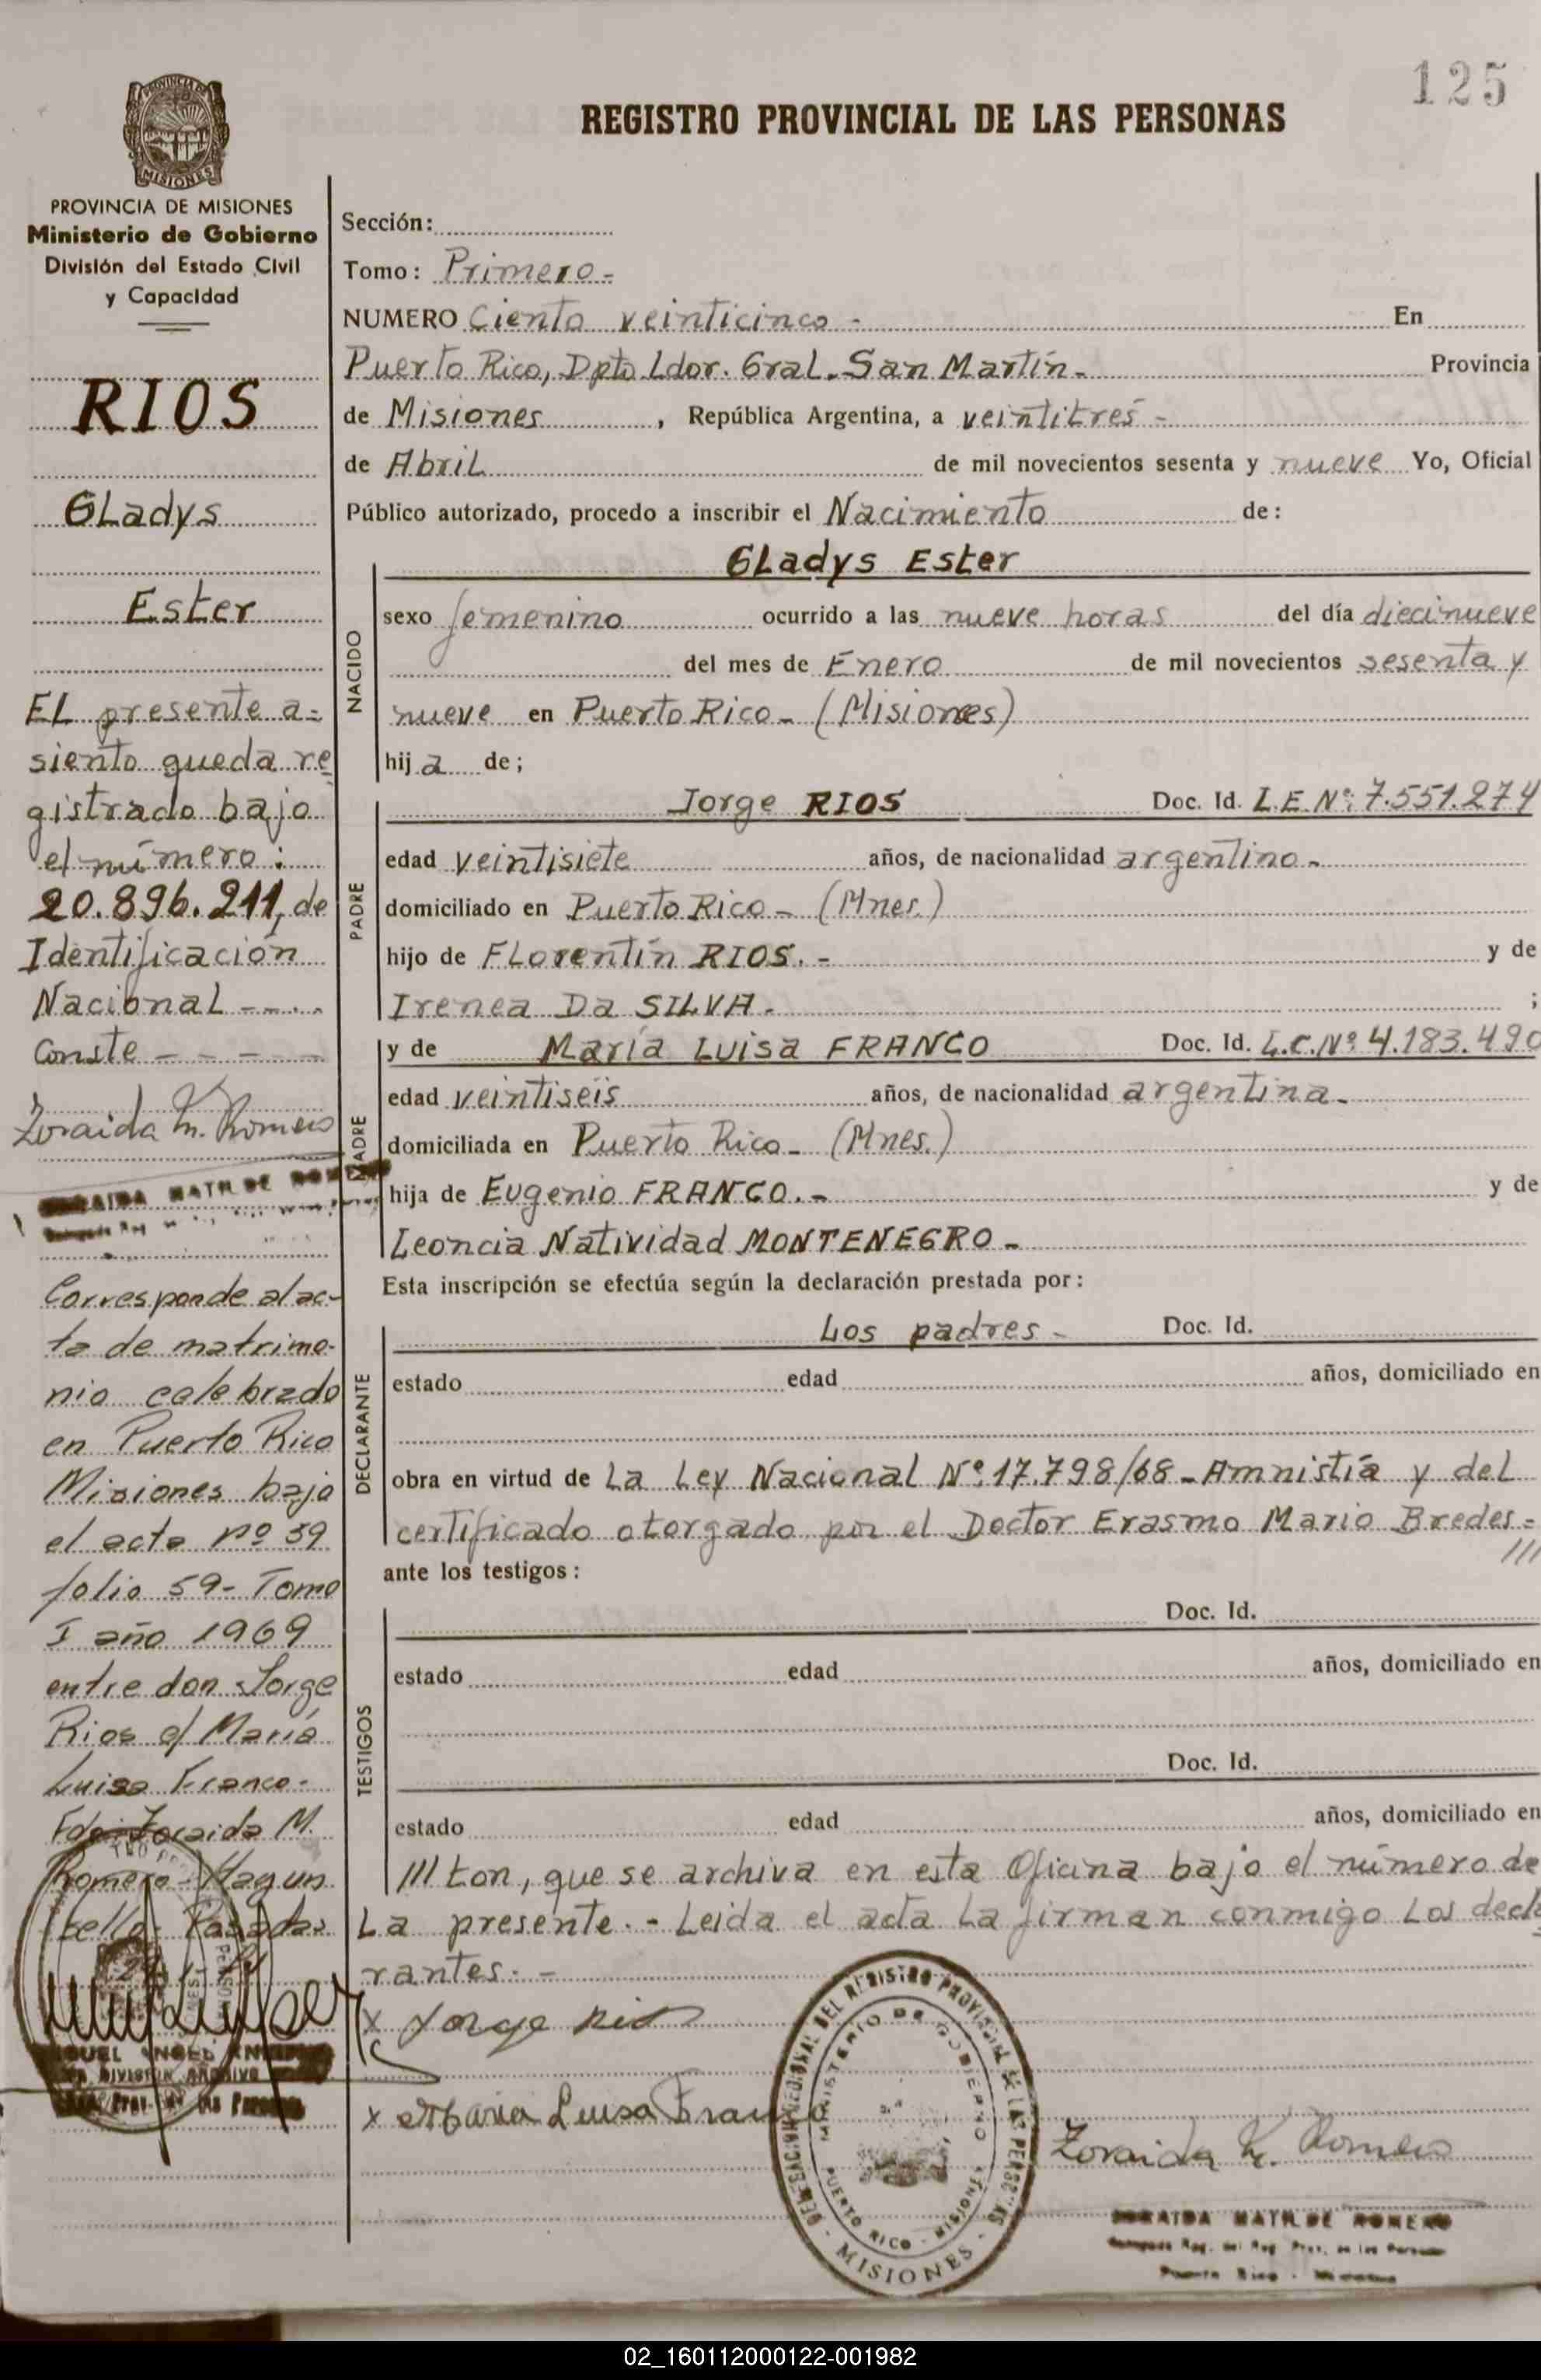 125
REGISTRO PROVINCIAL DE LAS PERSONAS
PROVINCIA DE MISIONES
Ministerio de Gobierno
División del Estado Civil
y Capacidad
RIOS
Gladys
Ester
El presente a=
siento queda re=
gistrado bajo
el número:
20.896.211, de
Identificación
Nacional --..
Conste - - - -
Zoraida M. Romero
ZORAIDA MATILDE ROMERO
Corresponde al ac-
ta de matrimo-
nio celebrado
en Puerto Rico
Misiones bajo
el acta nº 59
folio 59- Tomo
I año 1969
entre don Jorge
Rios c/ María
Luisa Franco-
Fdo: Zoraida M.
Romero- Hay un
sello- Posadas
DIVISION ARCHIVO
Sección:
Tomo: Primero-
NUMERO Ciento veinticinco - En
Puerto Rico, Dpto. Ldor. Gral. San Martín- Provincia
de Misiones , República Argentina, a veintitrés -
de Abril de mil novecientos sesenta y nueve Yo, Oficial
Público autorizado, procedo a inscribir el Nacimiento de:
NACIDO
Gladys Ester
sexo femenino ocurrido a las nueve horas del día diecinueve
del mes de Enero de mil novecientos sesenta y
nueve en Puerto Rico- (Misiones)
hija de;
PADRE
Jorge RIOS Doc. Id. L.E.Nº: 7.551.274
edad veintisiete años, de nacionalidad argentino-
domiciliado en Puerto Rico- (Mnes.)
hijo de Florentín RIOS.- y de
Irenea Da SILVA. ;
MADRE
y de María Luisa FRANCO Doc. Id. L.C.Nº 4.183.490
edad veintiséis años, de nacionalidad argentina-
domiciliada en Puerto Rico- (Mnes.)
hija de Eugenio FRANCO.- y de
Leoncia Natividad MONTENEGRO-
Esta inscripción se efectúa según la declaración prestada por:
DECLARANTE
Los padres- Doc. Id.
estado edad años, domiciliado en
obra en virtud de La Ley Nacional Nº:17.798/68-Amnistía y del
certificado otorgado por el Doctor Erasmo Mario Bredes=
///
ante los testigos:
TESTIGOS
Doc. Id.
estado edad años, domiciliado en
Doc. Id.
estado edad años, domiciliado en
///ton, que se archiva en esta Oficina bajo el número de
la presente.- Leida el acta la firman conmigo los decla
rantes.-
x Jorge Rios
x Maria Luisa Franco
DELEGACION REGIONAL DEL REGISTRO PROVINCIAL DE LAS PERSONAS
- MISIONES -
MINISTERIO DE GOBIERNO
PUERTO RICO - MISIONES
Zoraida M. Romero
ZORAIDA MATILDE ROMERO
Delegada Reg. del Reg. Prov. de las Personas
Puerto Rico - Misiones
02_160112000122-001982